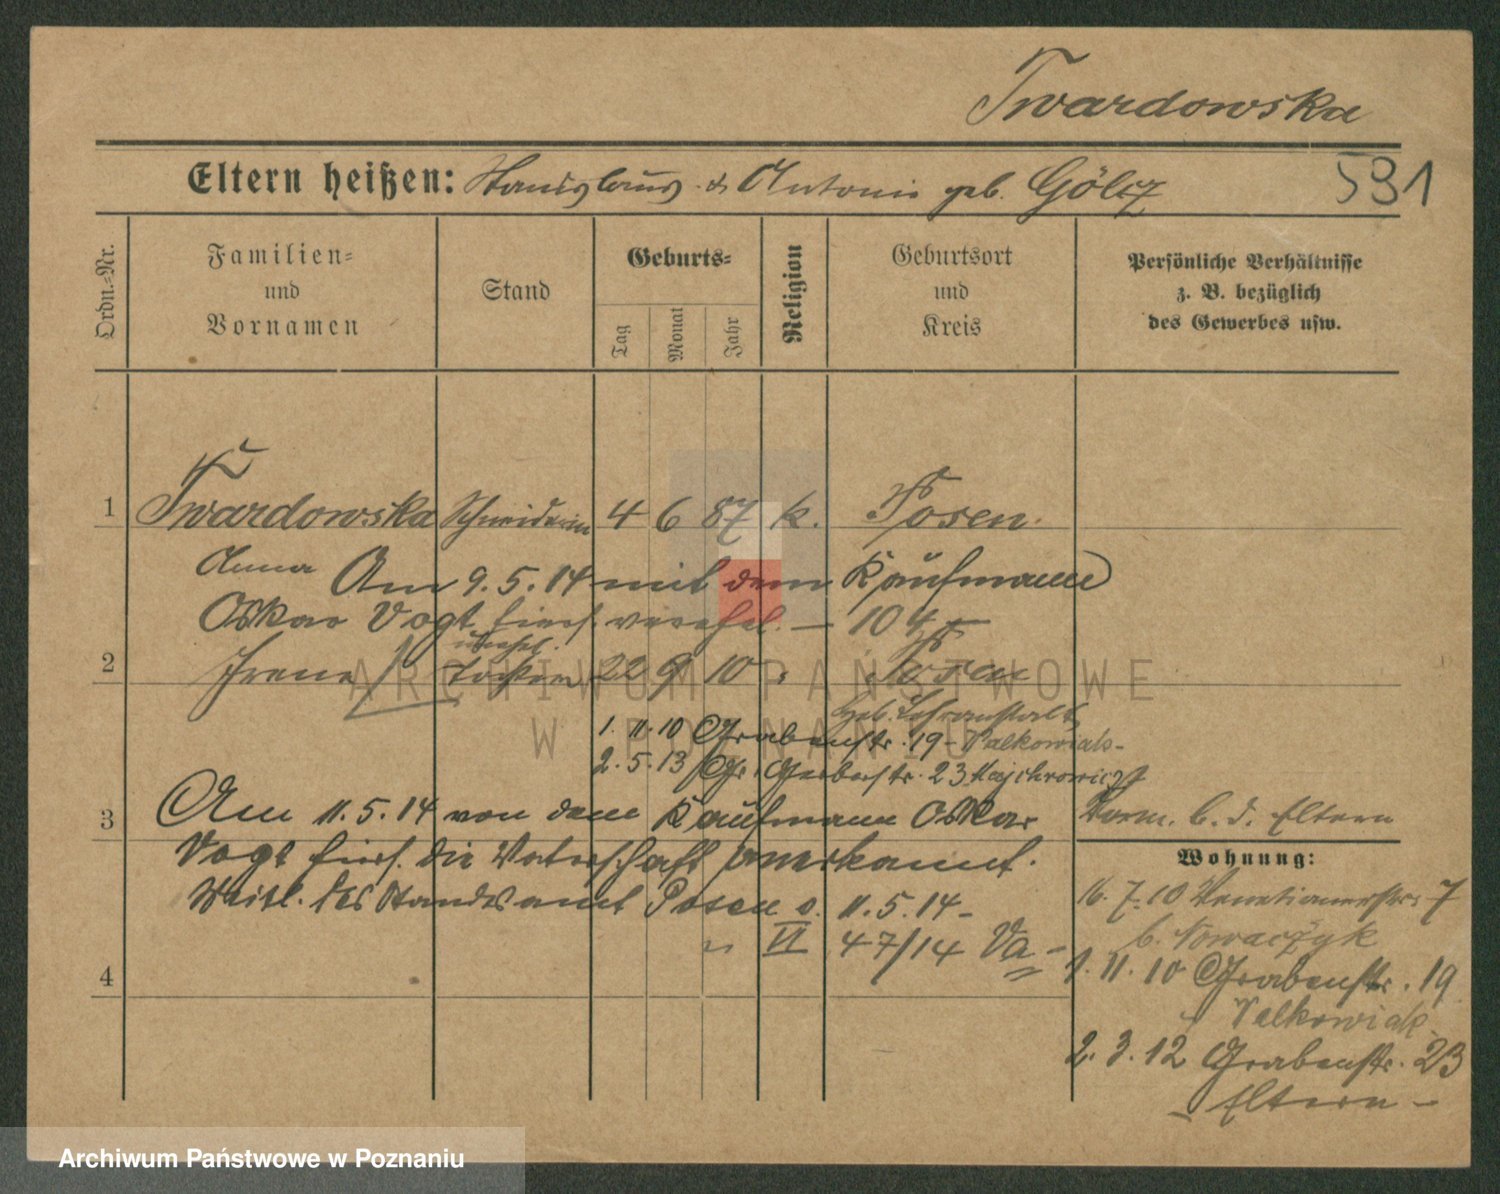 Twardowska
Eltern heißen: Stanislaus & Antonie geb. Gölcz
531
Ordn.-Nr.
Familien- und Vornamen
Stand
Geburts-
Tag
Monat
Jahr
Religion
Geburtsort und Kreis
Persönliche Verhältnisse
z. B. bezüglich
des Gewerbes usw.
1 Twardowska Schneiderin 4 6 87 k. Posen.
Anna Am 9.5.14 mit dem Kaufmann
Oskar Vogt hiers. verehel. — 104
unehel.
2 Irene Tochter 22 9 10 Posen
Heb. Lehranstalt
1.11.10 Grabenstr. 19 - Walkowiak -
2.5.13 Gr. Gerberstr. 23 Majchrowicz
3 Am 11.5.14 von dem Kaufmann Oskar
Vogt hiers. die Vaterschaft anerkannt.
Mitteil. des Standesamt Posen v. 11.5.14 -
VI 47/14 Va -
4
Vorm. b. d. Eltern
Wohnung:
16.7.10 Venetianerstr. 7
b. Nowaczyk
1.11.10 Grabenstr. 19
Walkowiak
2.3.12 Grabenstr. 23
- Eltern -
ARCHIWUM PAŃSTWOWE
W POZNANIU
Archiwum Państwowe w Poznaniu